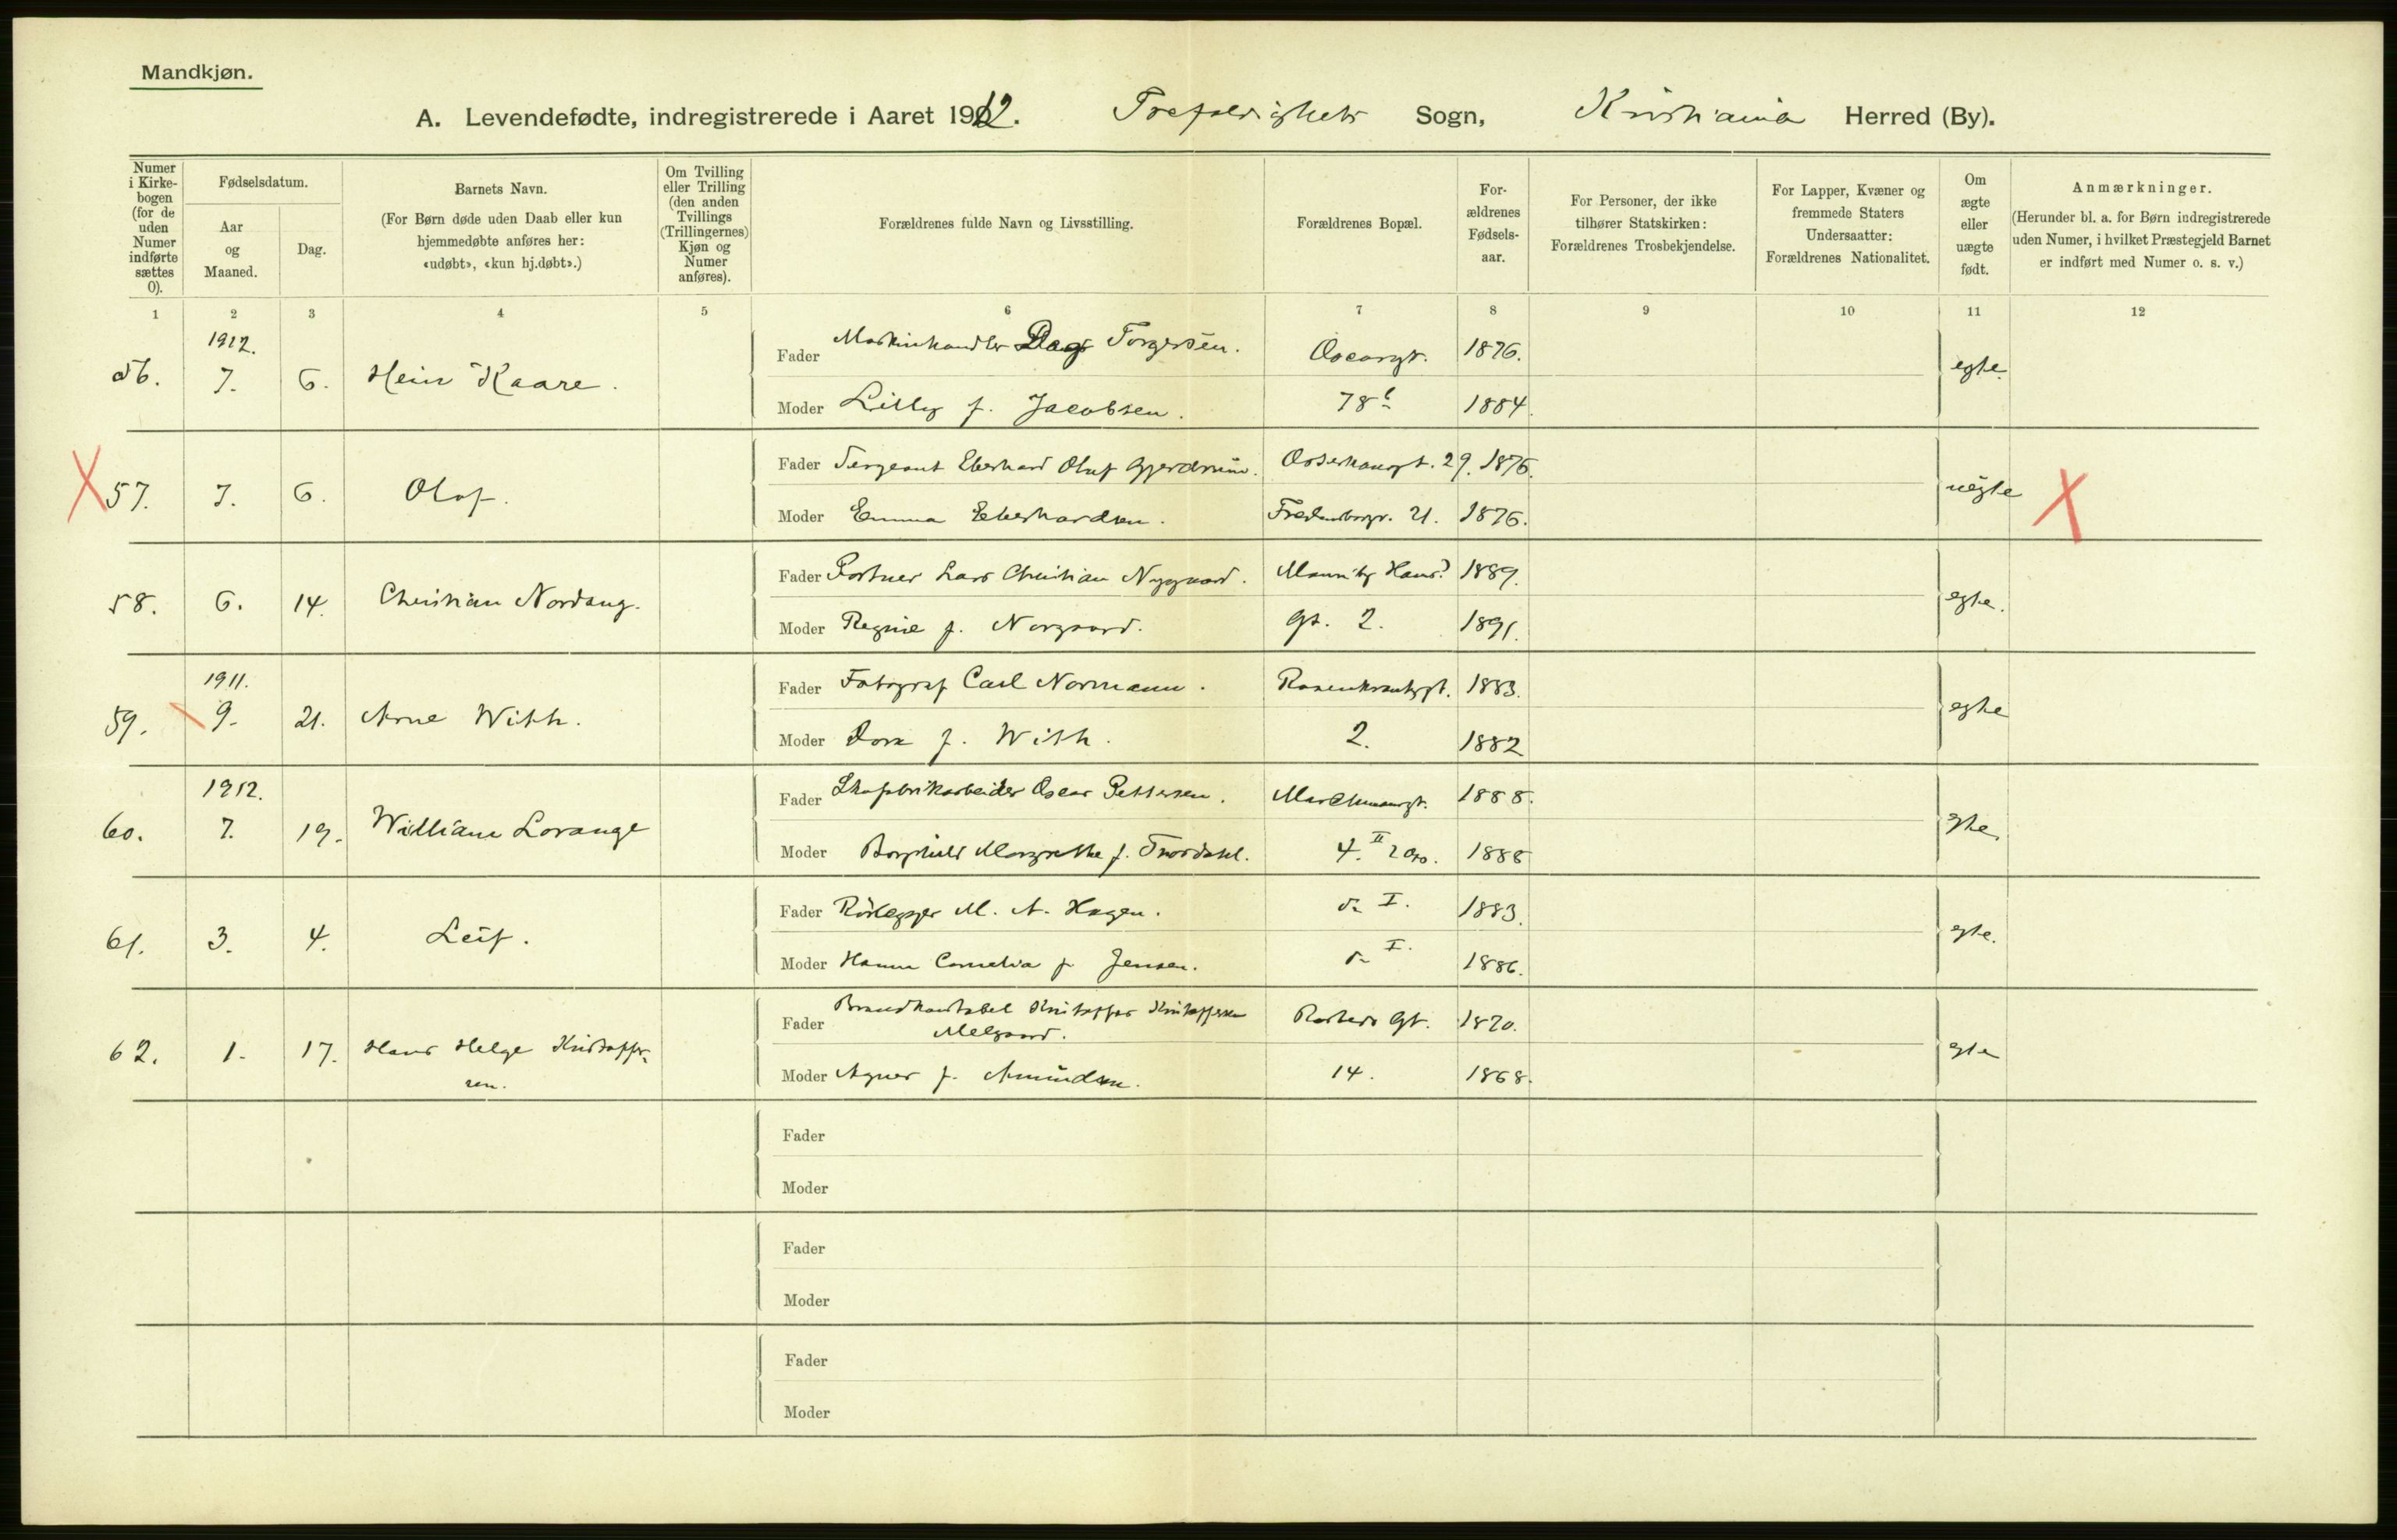 Mandkjøn.
A. Levendefødte, indregistrerede i Aaret 1912. Trefoldigheds Sogn, Kristiania Herred (By).
Numer i Kirkebogen (for de uden Numer indførte sættes 0).
Fødselsdatum.
Aar og Maaned.
Dag.
Barnets Navn.
(For Børn døde uden Daab eller kun hjemmedøbte anføres her: «udøbt», «kun hj.døbt».)
Om Tvilling eller Trilling (den anden Tvillings (Trillingernes) Kjøn og Numer anføres).
Forældrenes fulde Navn og Livsstilling.
Forældrenes Bopæl.
For-ældrenes Fødsels-aar.
For Personer, der ikke tilhører Statskirken: Forældrenes Trosbekjendelse.
For Lapper, Kvæner og fremmede Staters Undersaatter: Forældrenes Nationalitet.
Om ægte eller uægte født.
Anmærkninger.
(Herunder bl. a. for Børn indregistrerede uden Numer, i hvilket Præstegjeld Barnet er indført med Numer o. s. v.)
1 2 3 4 5 6 7 8 9 10 11 12
1912.
56. 7. 6. Hein Kaare. Fader Maskinhandler Dag Torgersen. Oscarsgt. 1876. egte.
Moder Lilly f. Jacobsen. 78b 1884.
X 57. 7. 6. Olaf. Fader Sergeant Eberhard Oluf Gjerdrum. Osterhausgt. 29. 1876. uegte X
Moder Emma Eberhardsen. Fredensborgv. 21. 1876.
58. 6. 14. Christian Nordang. Fader Portner Lars Christian Nygaard. Mauritz Hans? 1889. egte.
Moder Regine f. Norgaard. gt. 2. 1891.
1911.
59. 9. 21. Arne With. Fader Fotograf Carl Normann. Rosenkrantzgt. 1883. egte
Moder Dora f. With. 2. 1882
1912.
60. 7. 19. William Lorange Fader Skofabrikarbeider Oscar Pettersen. Marchmannsgt. 1888. egte.
Moder Borghild Margrethe f. 4. II 1888
61. 3. 4. Leif. Fader Rørlegger M. A. Hagen. do I. 1883. egte.
Moder Hanna Cornelia f. Jensen. do I. 1886.
62. 1. 17. Hans Helge Kristoffer- Fader Brandkonstabel Kristoffer Kristoffersen Rosteds Gt. 1870. egte
sen. Melgaard.
Moder Agnes f. Amundsen. 14. 1868.
Fader
Moder
Fader
Moder
Fader
Moder